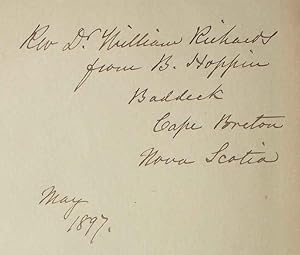 Rev Dr. William Richards
from B. Hoppin
Baddeck
Cape Breton
Nova Scotia
May
1897.